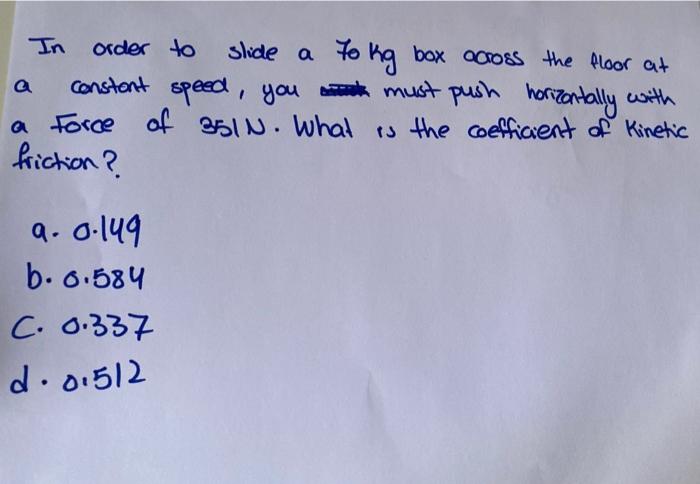 In order to slide a 70 kg box across the floor at
a constant speed, you must push horizontally with
a Force of 351N. What is the coefficient of Kinetic
friction?
a. 0.149
b. 0.584
C. 0.337
d. 0.512